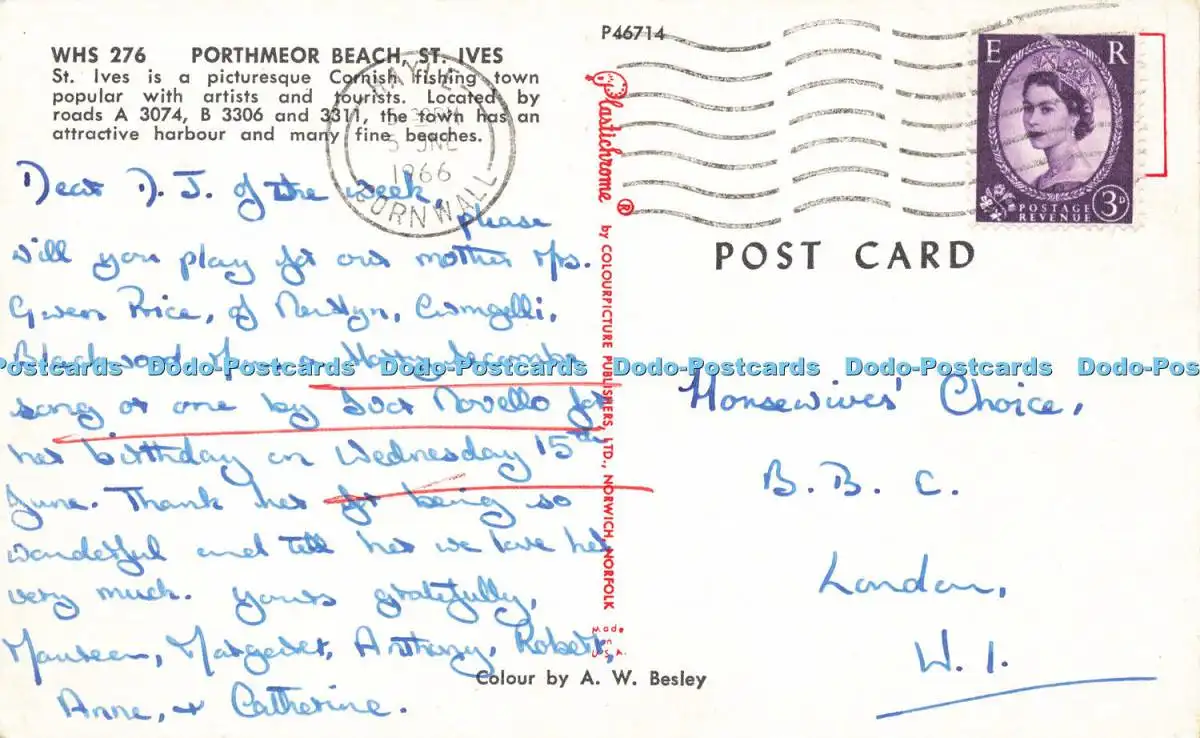 WHS 276 PORTHMEOR BEACH, ST. IVES
St. Ives is a picturesque Cornish fishing town
popular with artists and tourists. Located by
roads A 3074, B 3306 and 3311, the town has an
attractive harbour and many fine beaches.
HAYLE
5 JNE
1966
CORNWALL
Dear D.J. of the week,
please
will you play for our mother Mrs.
Gwen Price, of Newlyn, Cwmgelli,
Blackwood, Mon, a Harry Secombe
song or one by Ivor Novello for
her birthday on Wednesday 15th
June. Thank her for being so
wonderful and tell her we love her
very much. Yours gratefully,
Maureen, Margaret, Anthony, Robert,
Anne, + Catherine.
P46714
Plastichrome ® by COLOURPICTURE PUBLISHERS, LTD., NORWICH, NORFOLK
Made
in
U.S.A.
Colour by A. W. Besley
E R
POSTAGE
REVENUE
3D
POST CARD
Housewives' Choice,
B. B. C.
London,
W. 1.
Dodo-Postcards Dodo-Postcards Dodo-Postcards Dodo-Postcards